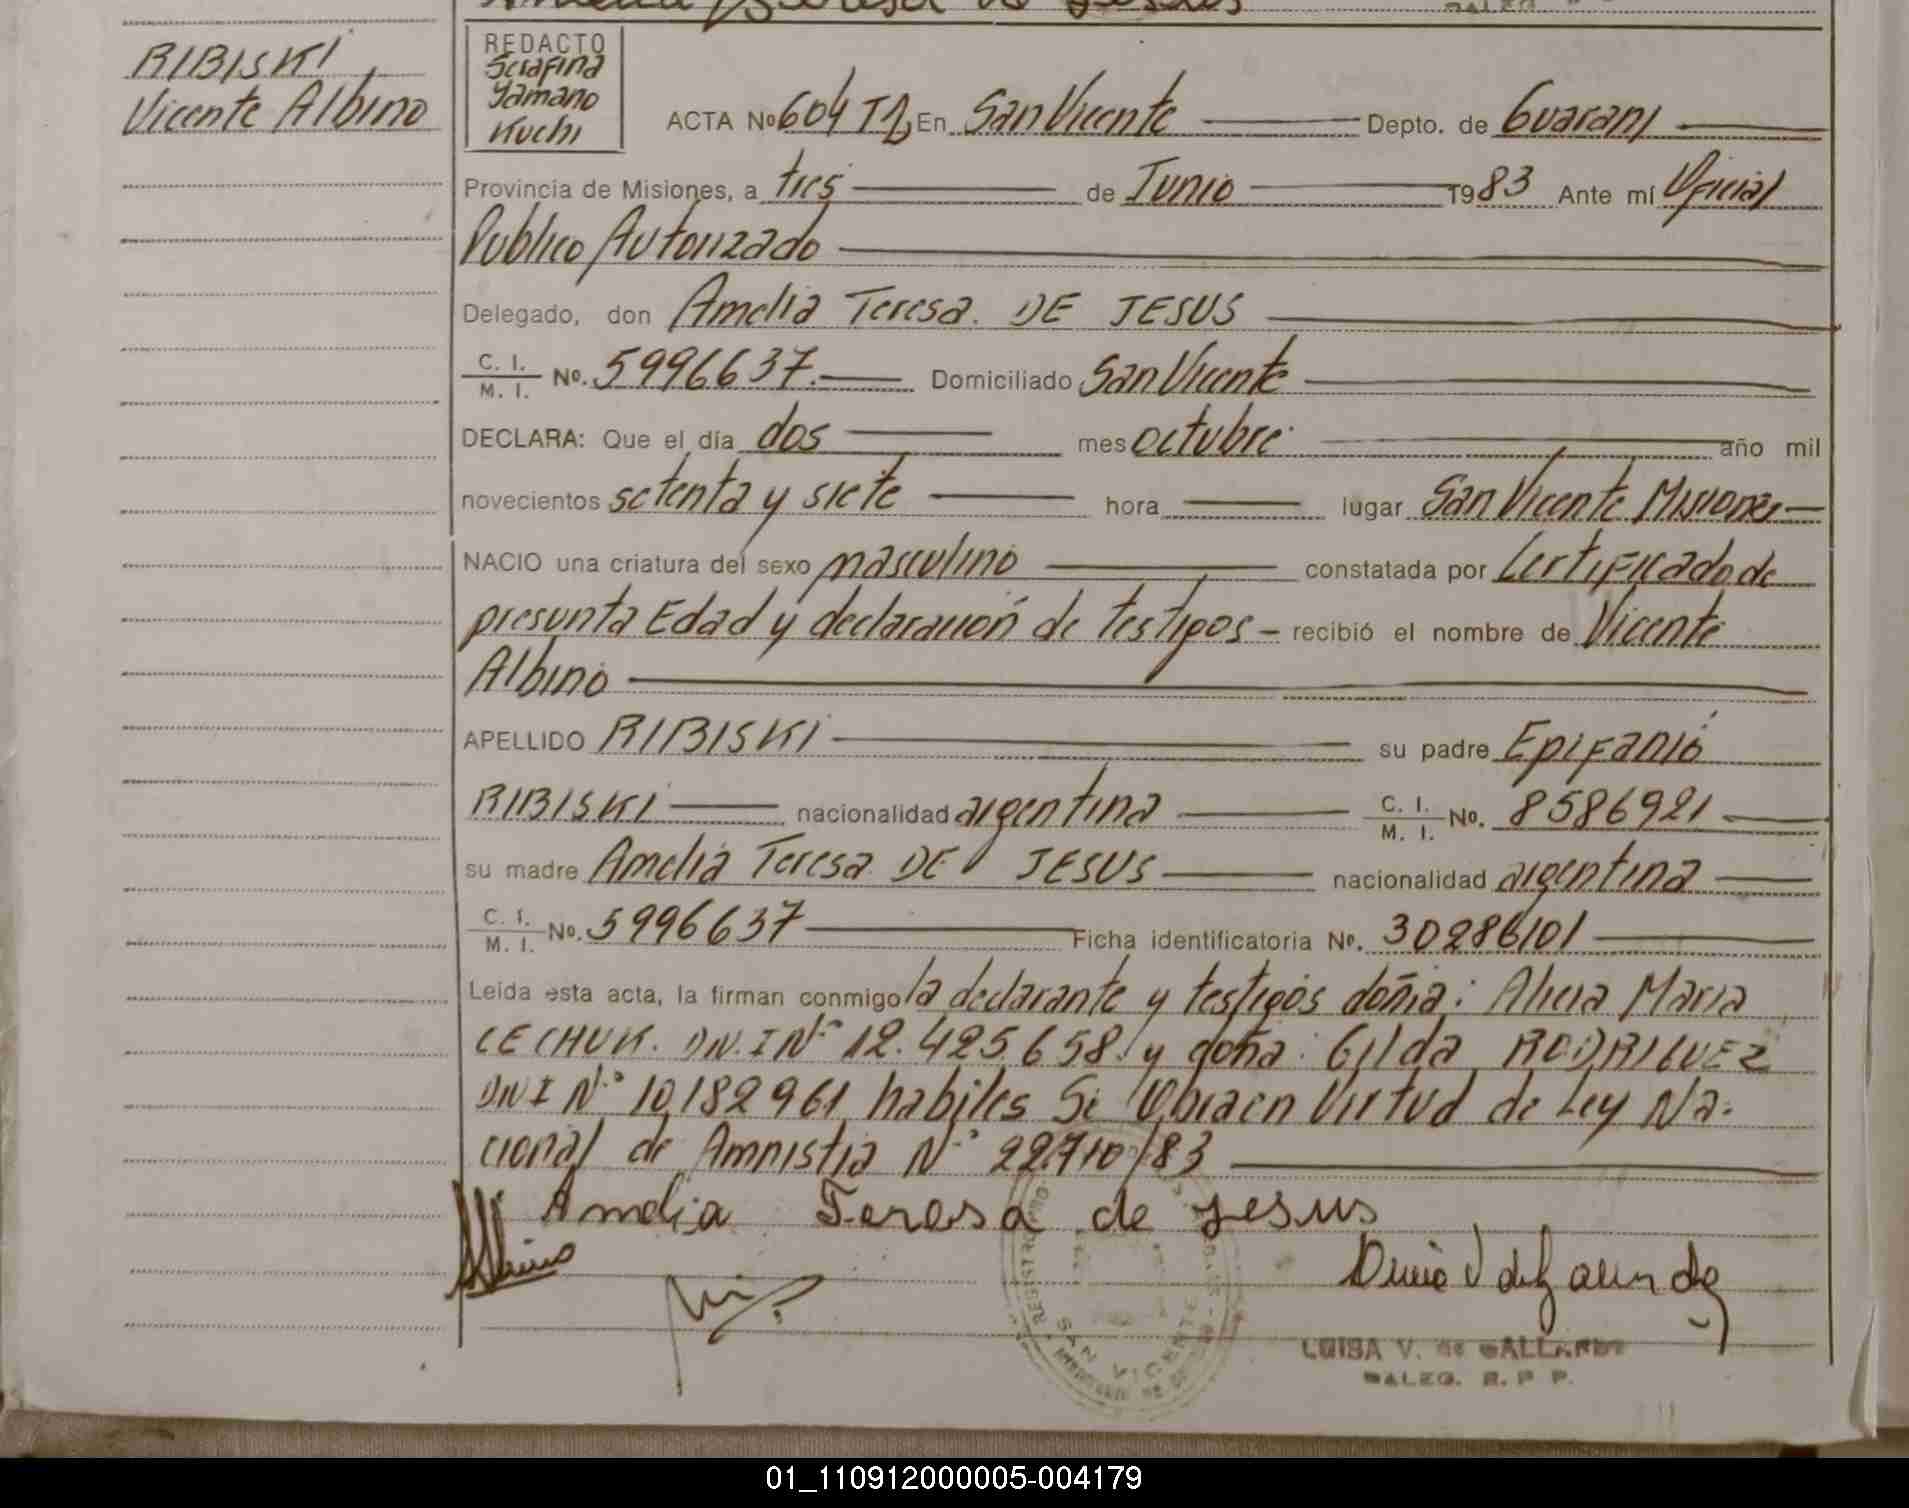 Amelia Teresa de Jesus
RIBISKI
Vicente Albino
REDACTO
Serafina
Yamano
Kuchi
ACTA Nº 604 T2, En San Vicente Depto. de Guarani
Provincia de Misiones, a tres de Junio 1983 Ante mí Oficial
Publico Autorizado
Delegado, don Amelia Teresa. DE JESUS
C. I. / M. I. Nº. 5996637. Domiciliado San Vicente
DECLARA: Que el día dos mes octubre año mil
novecientos setenta y siete hora lugar San Vicente Misiones
NACIO una criatura del sexo masculino constatada por Certificado de
presunta Edad y declaración de testigos - recibió el nombre de Vicente
Albino
APELLIDO RIBISKI su padre Epifanio
RIBISKI nacionalidad argentina C. I. / M. I. Nº. 8586921
su madre Amelia Teresa DE JESUS nacionalidad argentina
C. I. / M. I. Nº. 5996637 Ficha identificatoria Nº. 30286101
Leída esta acta, la firman conmigo la declarante y testigos doña: Alicia Maria
CECHUK. DN.I Nº 12.425.658. y doña: Gilda RODRIGUEZ
DNI Nº 10.182961 habiles Se Obra en Virtud de Ley Na-
cional de Amnistia Nº 22.710/83
Amelia Teresa de Jesus
SAN VICENTE
LUISA V. de GALLARDO
DALEG. R. P. P.
01_110912000005-004179